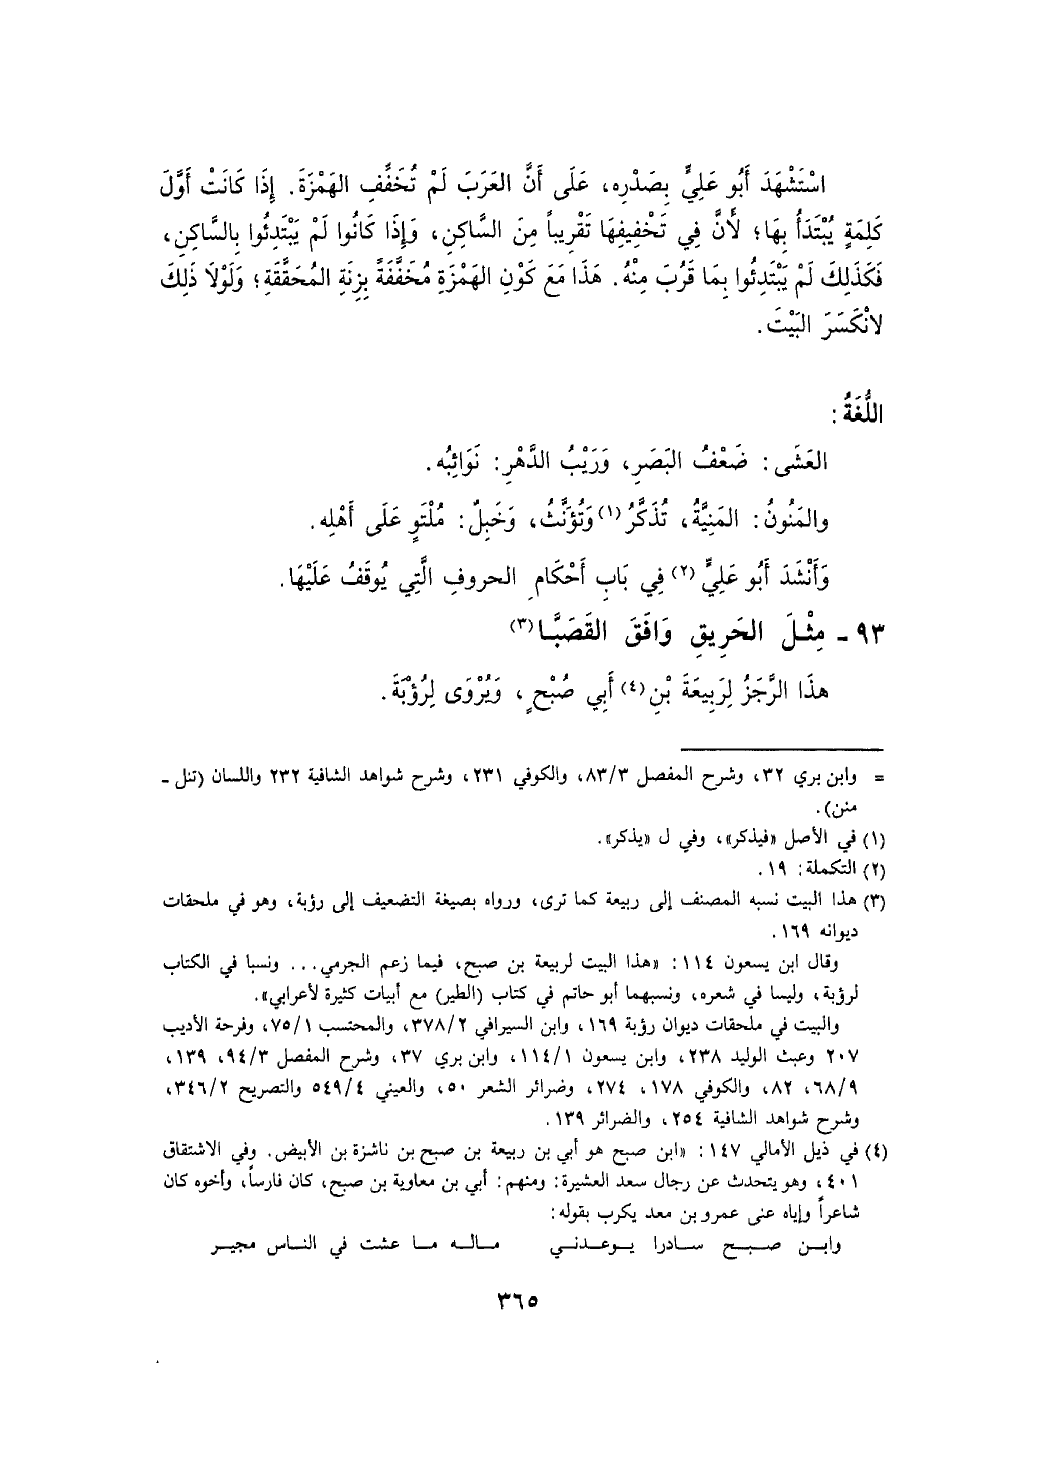 اسْتَشْهَدَ أَبُو عَلِيٍّ بِصَدْرِهِ، عَلَى أَنَّ العَرَبَ لَمْ تُخَفِّفِ الهَمْزَةَ. إِذَا كَانَتْ أَوَّلَ
كَلِمَةٍ يُبْتَدَأُ بِهَا؛ لأَنَّ فِي تَخْفِيفِهَا تَقْرِيباً مِنَ السَّاكِنِ، وَإِذَا كَانُوا لَمْ يَبْتَدِئُوا بِالسَّاكِنِ،
فَكَذَلِكَ لَمْ يَبْتَدِئُوا بِمَا قَرُبَ مِنْهُ. هَذَا مَعَ كَوْنِ الهَمْزَةِ مُخَفَّفَةً بِزِنَةِ المُحَقَّقَةِ؛ وَلَوْلاَ ذَلِكَ
لانْكَسَرَ البَيْتَ.
اللُّغَةُ:
العَشَى: ضَعْفُ البَصَرِ، وَرَيْبُ الدَّهْرِ: نَوَائِبُه.
والمَنُونُ: المَنِيَّةُ، تُذَكَّرُ (١) وَتُؤَنَّثُ، وَخَبِلٌ: مُلْتَوٍ عَلَى أَهْلِه.
وَأَنْشَدَ أَبُو عَلِيٍّ (٢) فِي بَابِ أَحْكَامِ الحروفِ الَّتِي يُوقَفُ عَلَيْهَا.
٩٣ ـ مِثْلَ الحَرِيقِ وَافَقَ القَصَبَّا (٣)
هذَا الرَّجَزُ لِرَبِيعَةَ بْنِ (٤) أَبِي صُبْحٍ، وَيُرْوَى لِرُؤْبَةَ.
= وابن بري ٣٢، وشرح المفصل ٨٣/٣، والكوفي ٢٣١، وشرح شواهد الشافية ٢٣٢ واللسان (تنل ـ
منن).
(١) في الأصل «فيذكر»، وفي ل «يذكر».
(٢) التكملة: ١٩.
(٣) هذا البيت نسبه المصنف إلى ربيعة كما ترى، ورواه بصيغة التضعيف إلى رؤبة، وهو في ملحقات
ديوانه ١٦٩.
وقال ابن يسعون ١١٤: «هذا البيت لربيعة بن صبح، فيما زعم الجرمي... ونسبا في الكتاب
لرؤبة، وليسا في شعره، ونسبهما أبو حاتم في كتاب (الطير) مع أبيات كثيرة لأعرابي».
والبيت في ملحقات ديوان رؤبة ١٦٩، وابن السيرافي ٣٧٨/٢، والمحتسب ٧٥/١، وفرحة الأديب
٢٠٧ وعبث الوليد ٢٣٨، وابن يسعون ١١٤/١، وابن بري ٣٧، وشرح المفصل ٩٤/٣، ١٣٩،
٦٨/٩، ٨٢، والكوفي ١٧٨، ٢٧٤، وضرائر الشعر ٥٠، والعيني ٥٤٩/٤ والتصريح ٣٤٦/٢،
وشرح شواهد الشافية ٢٥٤، والضرائر ١٣٩.
(٤) في ذيل الأمالي ١٤٧: «ابن صبح هو أبي بن ربيعة بن صبح بن ناشزة بن الأبيض. وفي الاشتقاق
٤٠١، وهو يتحدث عن رجال سعد العشيرة: ومنهم: أبي بن معاوية بن صبح، كان فارساً، وأخوه كان
شاعراً وإياه عنى عمرو بن معد يكرب بقوله:
وابن صبح سادرا يوعدني    ماله ما عشت في الناس مجير
٣٦٥